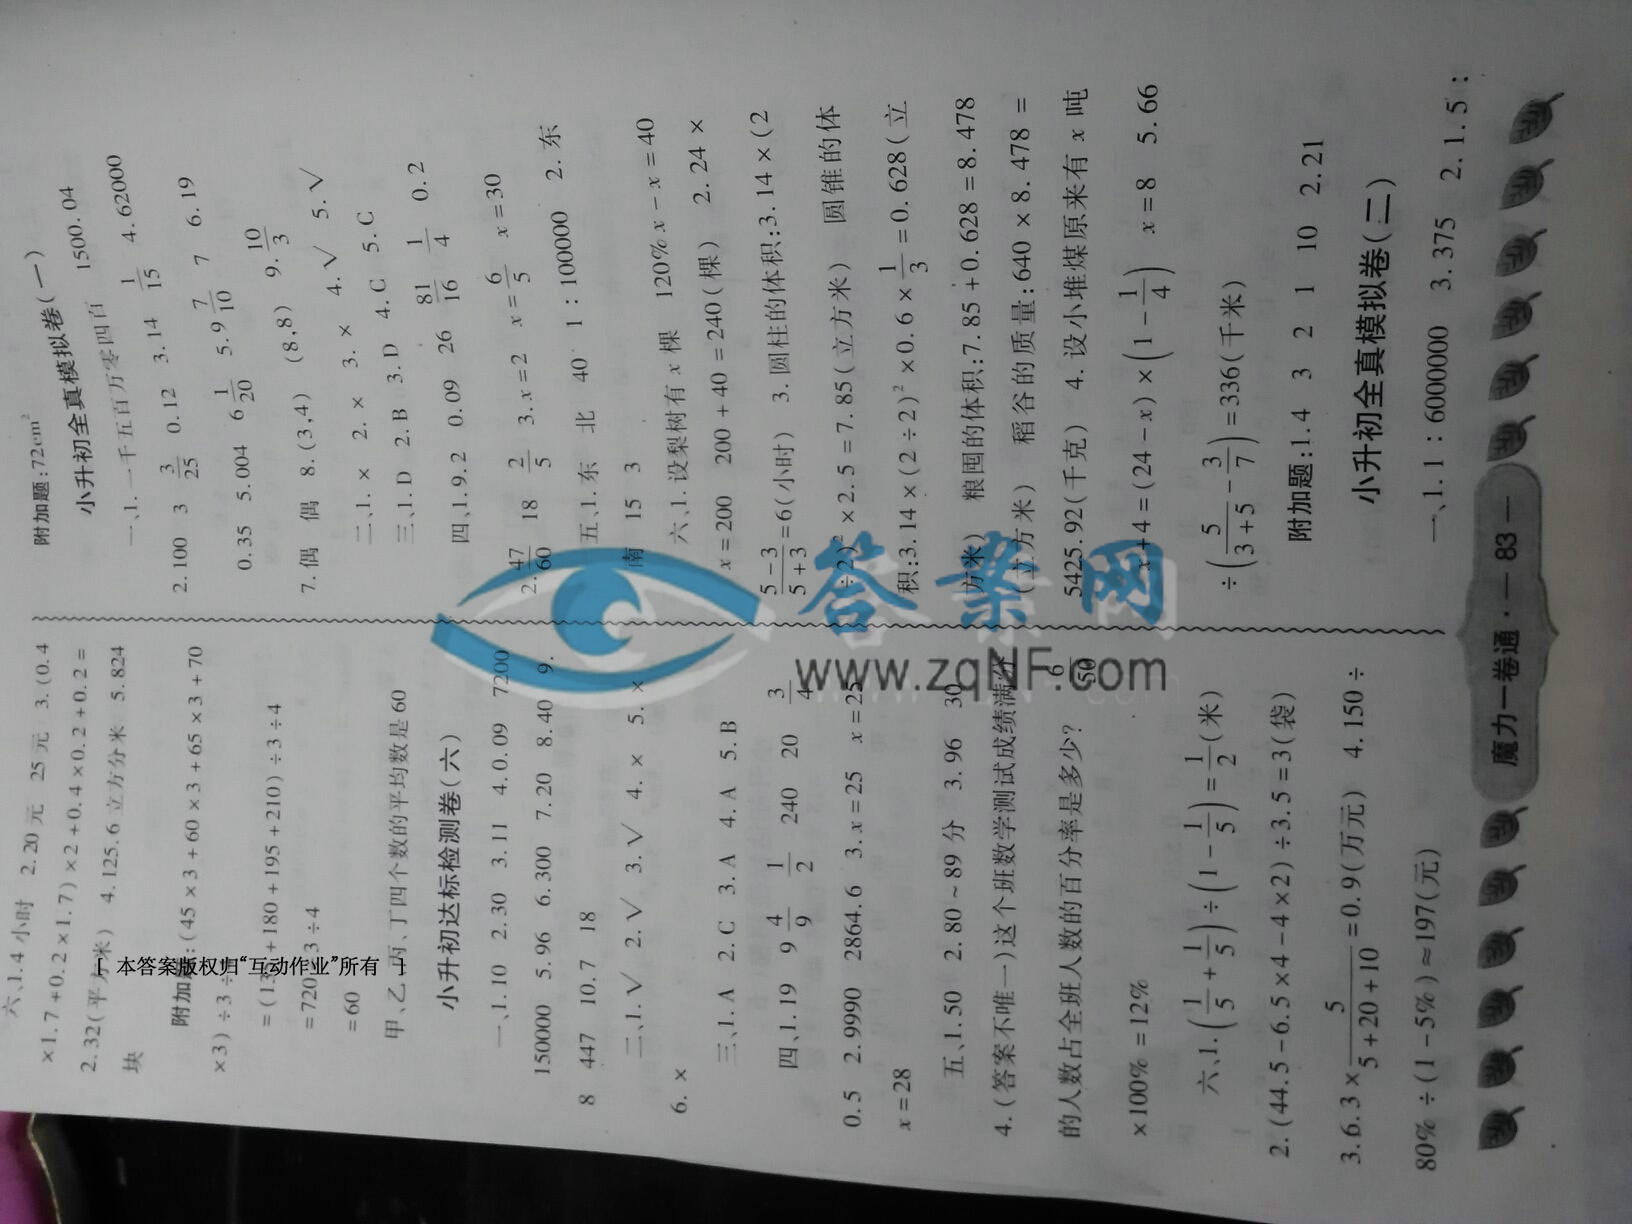 六、1.4小时 2.20元 25元 3.(0.4
×1.7+0.2×1.7)×2+0.4×0.2+0.2=
2.32(平方米) 4.125.6立方分米 5.824
块
附加题:(45×3+60×3+65×3+70
×3)÷3÷4
=(135+180+195+210)÷3÷4
=720÷3÷4
=60
甲、乙、丙、丁四个数的平均数是60
小升初达标检测卷(六)
一、1.10 2.30 3.11 4.0.09 7200
150000 5.96 6.300 7.20 8.40 9.
8 447 10.7 18
二、1.√ 2.√ 3.√ 4.× 5.×
6.×
三、1.A 2.C 3.A 4.A 5.B
四、1.19 9 4/9 1/2 240 20 3/4
0.5 2.9990 2864.6 3.x=25 x=25
x=28
五、1.50 2.80~89分 3.96 30
4.(答案不唯一)这个班数学测试成绩满分
的人数占全班人数的百分率是多少? 6/50
×100%=12%
六、1.(1/5+1/5)÷(1-1/5)=1/2(米)
2.(44.5-6.5×4-4×2)÷3.5=3(袋)
3.6.3×5/(5+20+10)=0.9(万元) 4.150÷
80%÷(1-5%)≈197(元)
附加题:72cm²
小升初全真模拟卷(一)
一、1.一千五百万零四百 1500.04
2.100 3 3/25 0.12 3.14 1/15 4.62000
0.35 5.004 6 1/20 5.9 7/10 7 6.19
7.偶 偶 8.(3,4) (8,8) 9.10/3
二、1.× 2.× 3.× 4.√ 5.√
三、1.D 2.B 3.D 4.C 5.C
四、1.9.2 0.09 26 81/16 1/4 0.2
2.47/60 18 2/5 3.x=2 x=6/5 x=30
五、1.东 北 40 1:100000 2.东
南 15 3
六、1.设梨树有x棵 120%x-x=40
x=200 200+40=240(棵) 2.24×
(5-3)/(5+3)=6(小时) 3.圆柱的体积:3.14×(2
÷2)²×2.5=7.85(立方米) 圆锥的体
积:3.14×(2÷2)²×0.6×1/3=0.628(立
方米) 粮囤的体积:7.85+0.628=8.478
(立方米) 稻谷的质量:640×8.478=
5425.92(千克) 4.设小堆煤原来有x吨
x+4=(24-x)×(1-1/4) x=8 5.66
÷(5/(3+5)-3/7)=336(千米)
附加题:1.4 3 2 1 10 2.21
小升初全真模拟卷(二)
一、1.1:6000000 3.375 2.1.5:
魔力一卷通·—83—
[ 本答案版权归“互动作业”所有 ]
答案网
www.zqNF.com